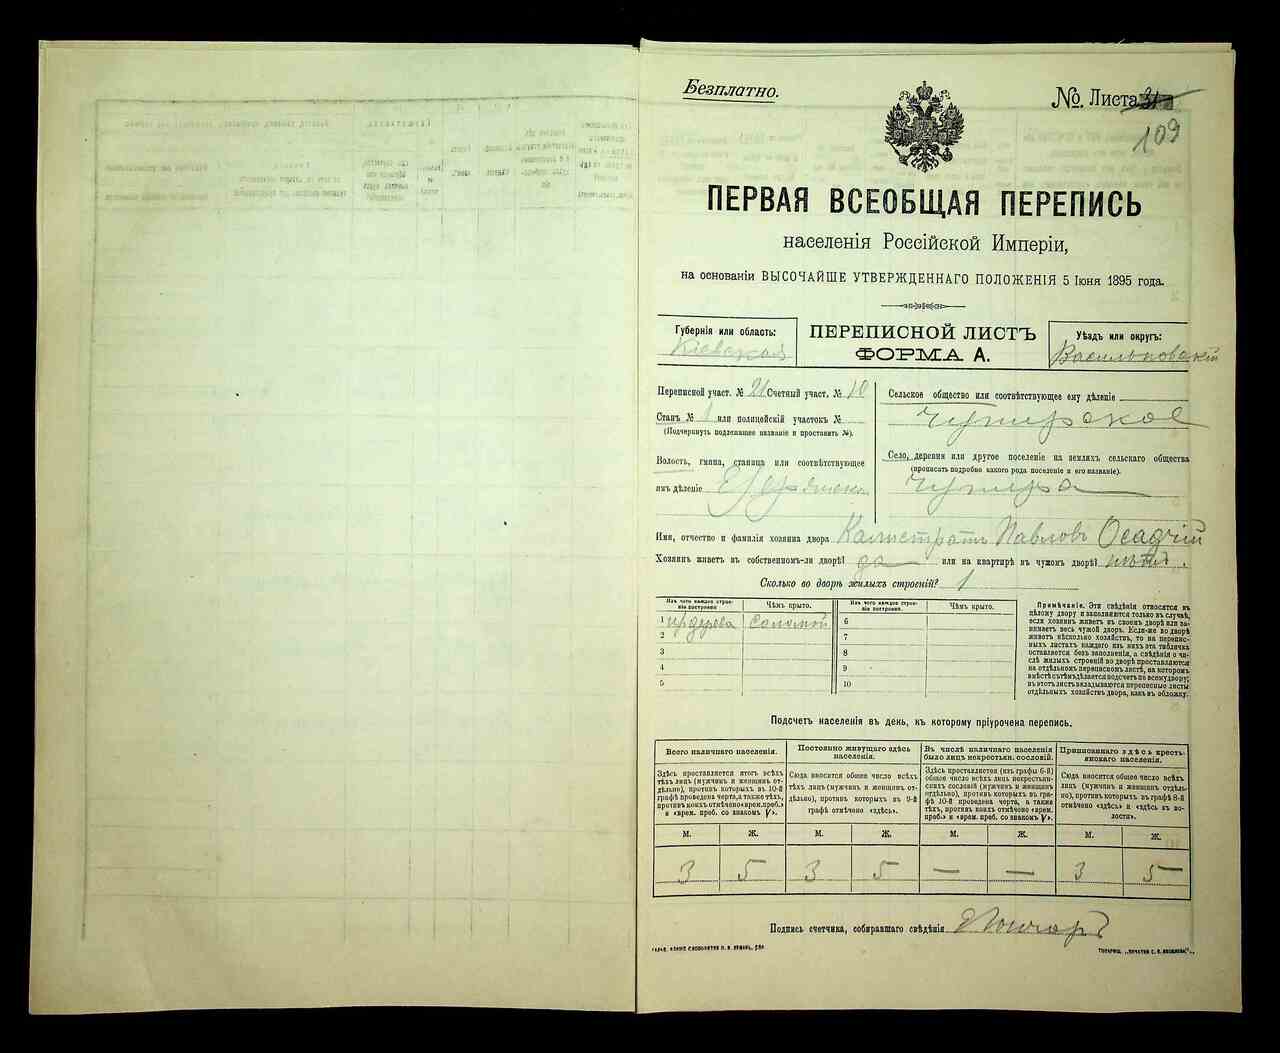 Безплатно.
№ Листа
109
ПЕРВАЯ ВСЕОБЩАЯ ПЕРЕПИСЬ
населенія Россійской Имперіи,
на основаніи ВЫСОЧАЙШЕ УТВЕРЖДЕННАГО ПОЛОЖЕНІЯ 5 Іюня 1895 года.
Губернія или область:
Кіевская
ПЕРЕПИСНОЙ ЛИСТЪ
ФОРМА А.
Уѣздъ или округъ:
Васильковскій
Переписной участ. № 21 Счетный участ. № 10
Станъ № 1 или полицейскій участокъ №
(Подчеркнуть подлежащее названіе и проставить №).
Волость, гмина, станица или соотвѣтствующее
имъ дѣленіе
Сельское общество или соотвѣтствующее ему дѣленіе
Чупирское
Село, деревня или другое поселеніе на земляхъ сельскаго общества
(прописать подробно какого рода поселеніе и его названіе).
Чупира
Имя, отчество и фамилія хозяина двора Калистратъ Павловъ Осадчій
Хозяинъ живетъ въ собственномъ-ли дворѣ? да или на квартирѣ въ чужомъ дворѣ? нѣтъ.
Сколько во дворѣ жилыхъ строеній? 1
Изъ чего каждое строеніе построено.
Чѣмъ крыто.
Изъ чего каждое строеніе построено.
Чѣмъ крыто.
1 изъ дерева соломой 6
2 7
3 8
4 9
5 10
Примѣчаніе. Эти свѣдѣнія относятся къ
цѣлому двору и заполняются только въ случаѣ,
если хозяинъ живетъ въ своемъ дворѣ или занимаетъ
весь чужой дворъ. Если-же во дворѣ
живетъ нѣсколько хозяйствъ, то на переписныхъ
листахъ каждаго изъ нихъ эта табличка
оставляется безъ заполненія, а свѣдѣнія о числѣ
жилыхъ строеній во дворѣ проставляются
на отдѣльномъ переписномъ листѣ, на которомъ
вмѣстѣ съ тѣмъ дѣлается подсчетъ по всему двору;
въ этотъ листъ вкладываются переписные листы
отдѣльныхъ хозяйствъ двора, какъ въ обложку.
Подсчетъ населенія въ день, къ которому пріурочена перепись.
Всего наличнаго населенія.
Здѣсь проставляется итогъ всѣхъ
тѣхъ лицъ (мужчинъ и женщинъ отдѣльно),
противъ которыхъ въ 10-й
графѣ проведена черта, а также тѣхъ,
противъ коихъ отмѣчено «врем. преб.»
и «врем. преб. со знакомъ V».
Постоянно живущаго здѣсь
населенія.
Сюда вносится общее число всѣхъ
тѣхъ лицъ (мужчинъ и женщинъ отдѣльно),
противъ которыхъ въ 9-й
графѣ отмѣчено «здѣсь».
Въ числѣ наличнаго населенія
было лицъ некрестьян. сословій.
Здѣсь проставляется (изъ графы 6-й)
общее число всѣхъ лицъ некрестьянскихъ
сословій (мужчинъ и женщинъ
отдѣльно), противъ которыхъ въ графѣ
10-й проведена черта, а также
тѣхъ, противъ коихъ отмѣчено «врем.
преб.» и «врем. преб. со знакомъ V».
Приписаннаго здѣсь крестьянскаго
населенія.
Сюда вносится общее число всѣхъ
лицъ (мужчинъ и женщинъ отдѣльно),
противъ которыхъ въ графѣ 8-й
отмѣчено «здѣсь» и «здѣсь въ волости».
М. Ж. М. Ж. М. Ж. М. Ж.
3 5 3 5 — — 3 5
Подпись счетчика, собиравшаго свѣдѣнія